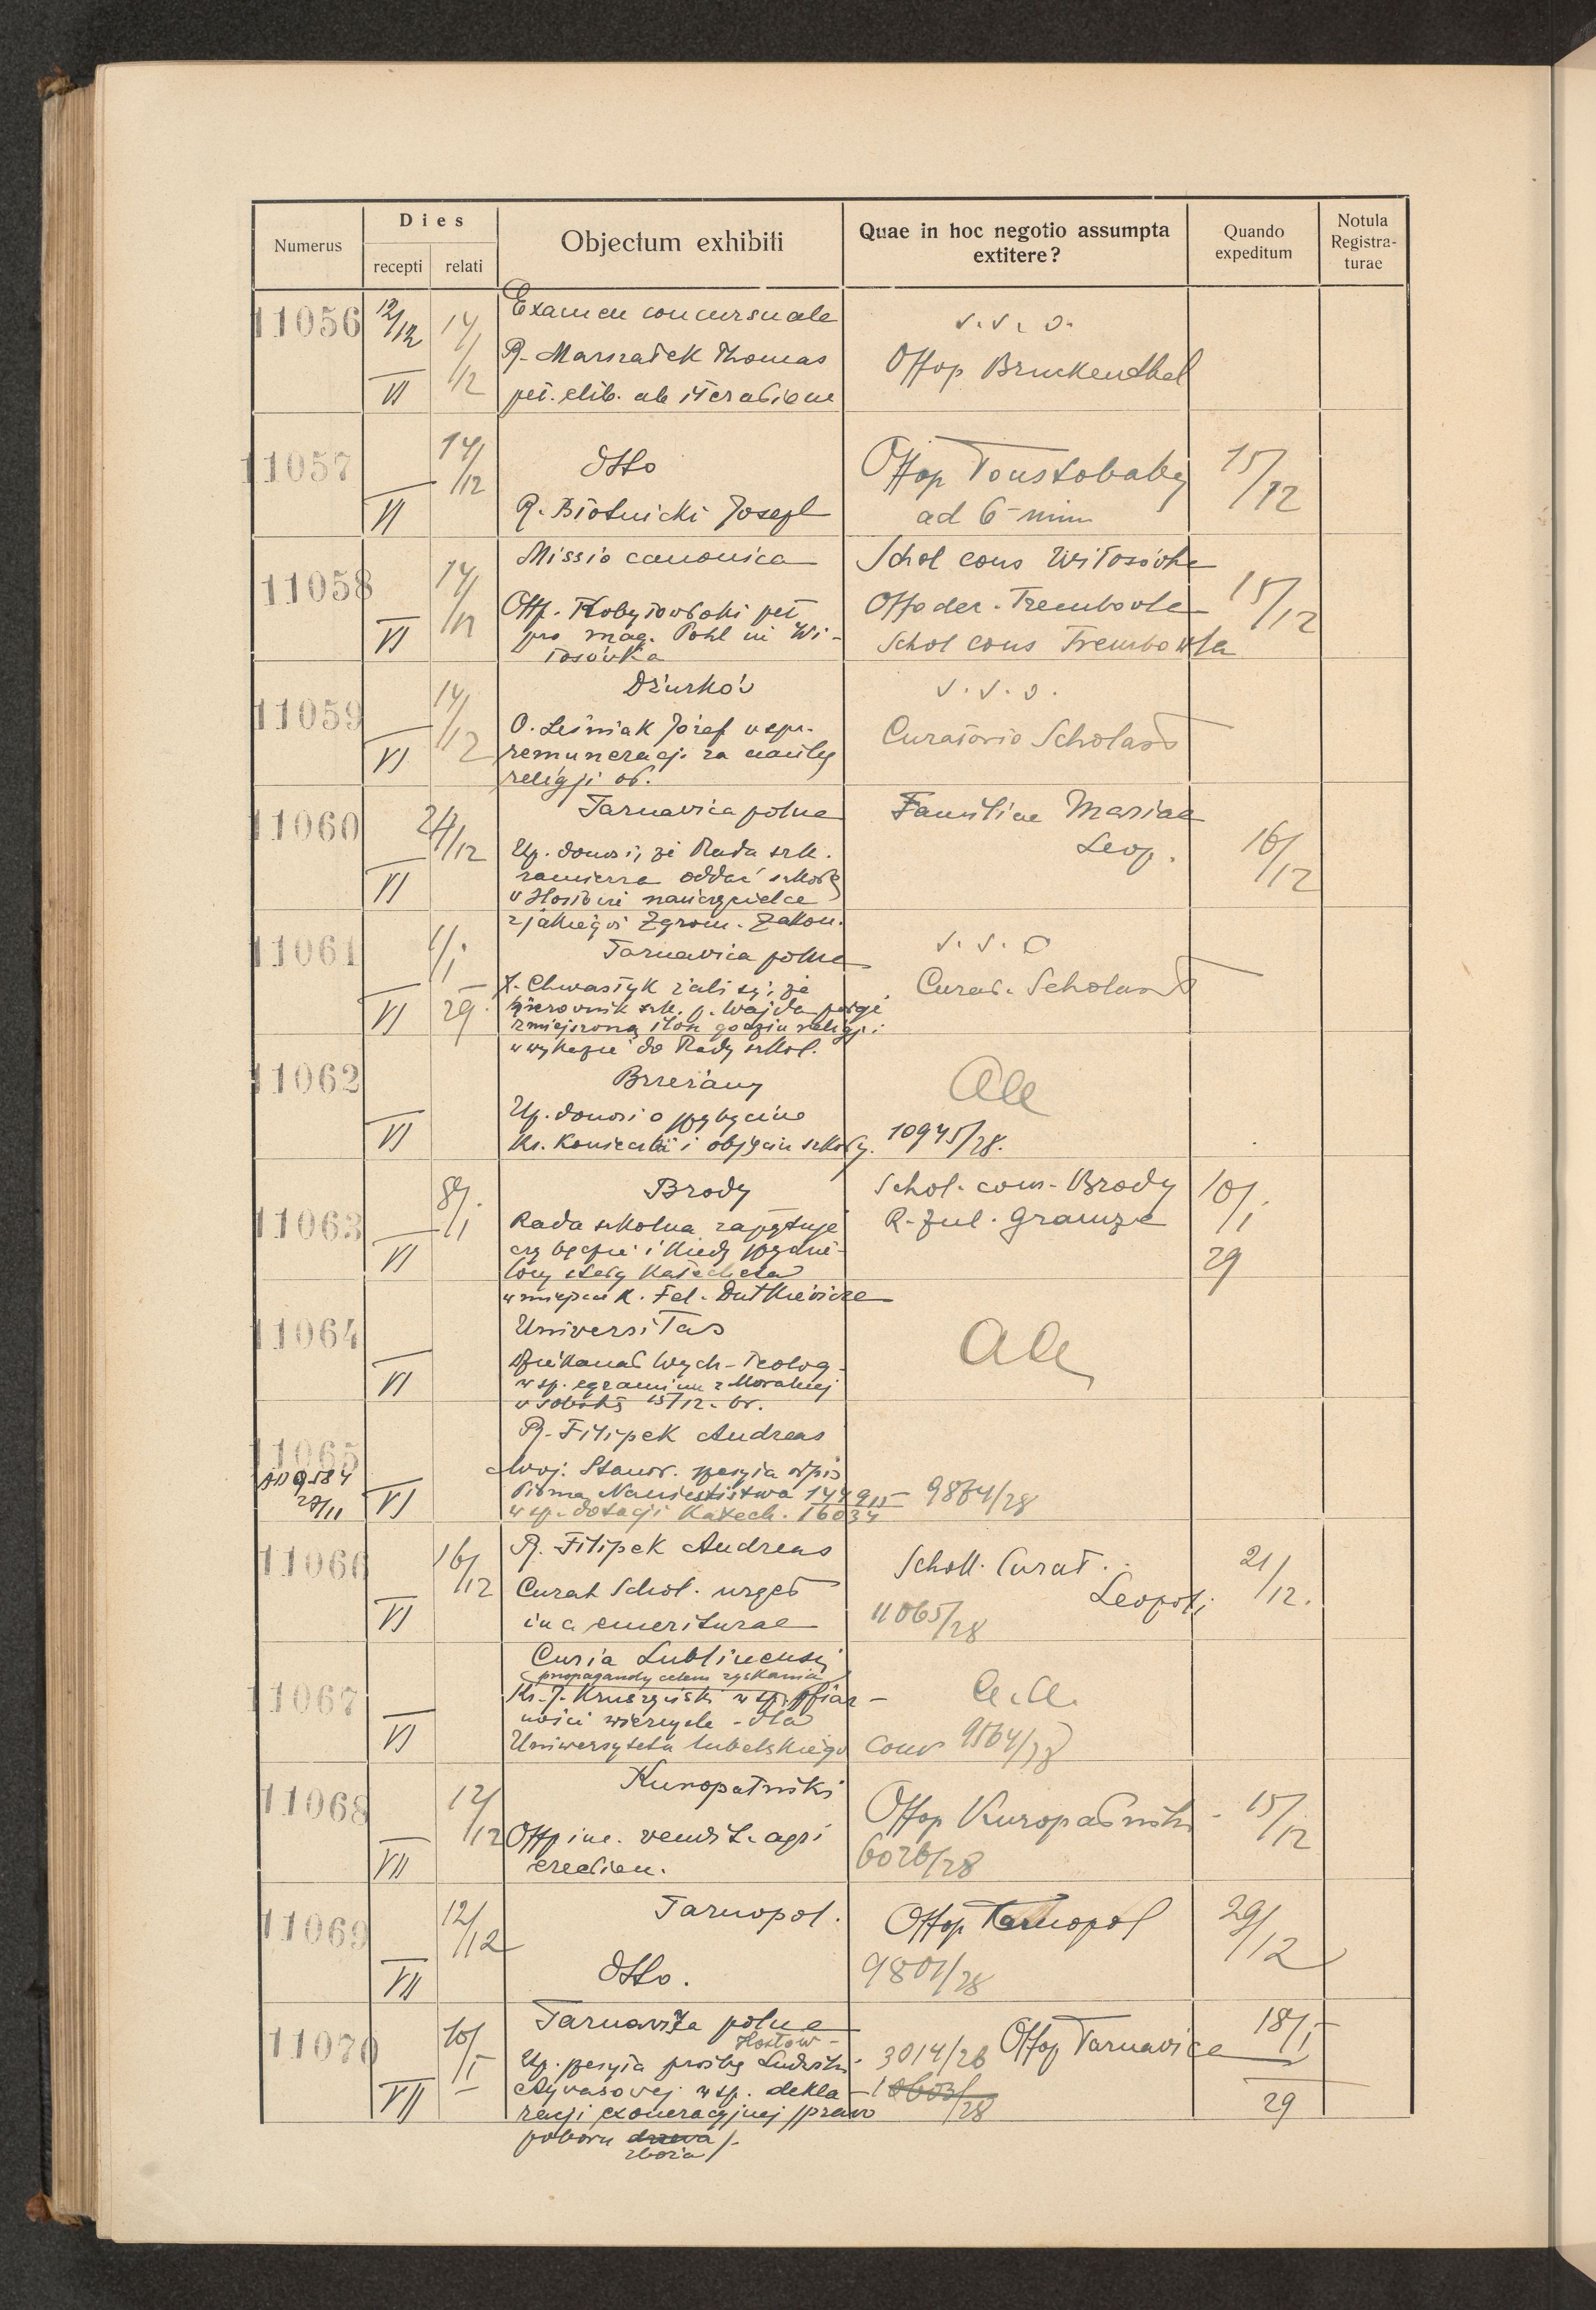 Numerus
Dies
recepti
relati
Objectum exhibiti
Quae in hoc negotio assumpta
extitere?
Quando
expeditum
Notula
Registra-
turae
11056
12/12
VI
14/12
Examen concursuale
R. Marszałek Thomas
pet. elib. ab iteratione
v. s. o.
Offop Bruckenthal
11057
VI
14/12
dtto
R. Błotnicki Joseph
Offop Toustobaby
ad 6 mim
15/12
11058
VI
14/12
Missio canonica
Off. Kobyłowłoki pet
pro mag. Pohl in Wi-
tosówka
Schol cons Witosówka
Offo der. Trembowla
Schol cons Trembowla
15/12
11059
VI
14/12
Dźurków
O. Leśniak Józef w spr.
remuneracji za naukę
religji ob.
v. s. o.
Curatorio Scholast
11060
VI
24/12
Tarnavica polna
Up. donosi, że Rada szk.
zamierza oddać szkołę
w Hostowie nauczycielce
z jakiegoś Zgrom. Zakon.
Familiae Mariae
Leop.
16/12
11061
VI
1/I
29
Tarnavica polna
X. Chwastyk żali się, że
kierownik szk. p. Wajda podaje
zmiejszoną ilość godzin religji
w wykazie do Rady szkol.
v. s. o
Curat. Scholast
11062
VI
Brzeżany
Up. donosi o przybyciu
Ks. Koniecki i objęciu szkoły.
Aa
10945/28.
11063
VI
8/I
Brody
Rada szkolna zapytuje
czy będzie i kiedy przydzie-
lony stały katecheta
w miejsce K. Fel. Dutkiewicza
Schol. com. Brody
R. Jul. Gramze
10/I
29
11064
VI
Universitas
Dziekanat Wydz. Teolog.
w sp. egzaminu z Moralnej
w sobotę 15/12. br.
Aa
11065
AD 9584
28/11
VI
R. Filipek Andreas
Woj. Stanis. przesyła odpis
Pisma Namiestnistwa 144915
w sp. dotacji Katech. 16034
9864/28
11066
VI
16/12
R. Filipek Andreas
Curat Schol. urget
in c. emeriturae
Schol. Curat.
Leopoli
11065/28
21/12.
11067
VI
Curia Lublinensis
(propagandy celem zyskania
Ks. J. Kruszyński w sp. ofiar-
ności wiernych dla
Uniwersytetu lubelskiego
a. a.
Conv 9564/28
11068
VII
12/12
Kuropatniki
Offp inc. vendit. agri
erection.
Offop Kuropatniki
6026/28
15/12
11069
VII
12/12
Tarnopol.
dtto.
Offop Tarnopol
9801/28
29/12
11070
VII
10/I
Tarnavica polna
Hostow-
Up. przesyła prośbę Ludwiki
w sp. dekla-
racji exoneracyjnej /prawo
poboru drzewa /.
zboża /
3014/26
Offop Tarnavica
18/I
29